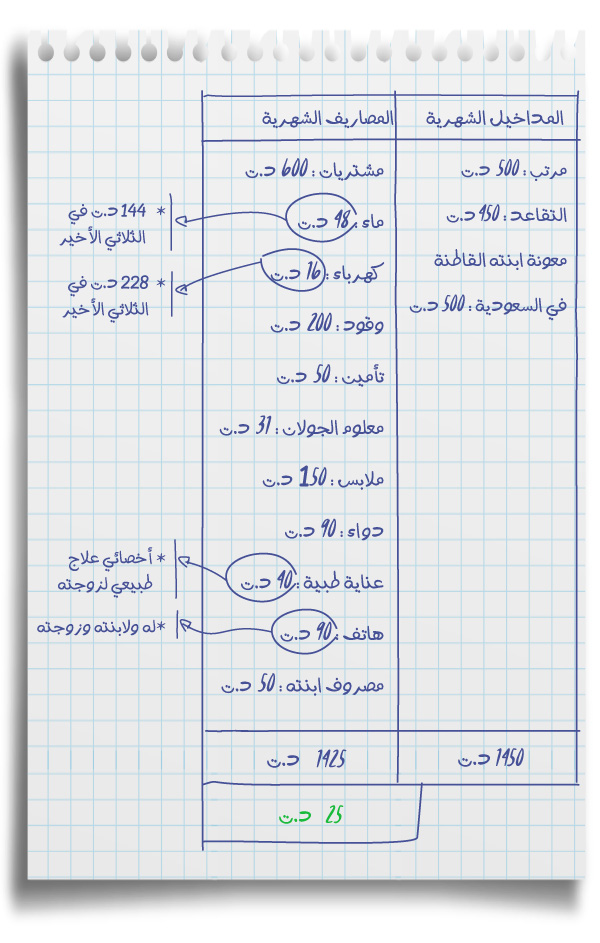 المداخيل الشهرية
مرتب: 500 د.ت
التقاعد: 450 د.ت
معونة ابنته القاطنة
في السعودية: 500 د.ت
1450 د.ت
المصاريف الشهرية
مشتريات: 600 د.ت
ماء: 48 د.ت
* 144 د.ت في
الثلاثي الأخير
كهرباء: 76 د.ت
* 228 د.ت في
الثلاثي الأخير
وقود: 200 د.ت
تأمين: 50 د.ت
معلوم الجولان: 31 د.ت
ملابس: 150 د.ت
دواء: 90 د.ت
عناية طبية: 40 د.ت
* أخصائي علاج
طبيعي لزوجته
هاتف: 90 د.ت
*له ولابنته وزوجته
مصروف ابنته: 50 د.ت
1425 د.ت
25 د.ت